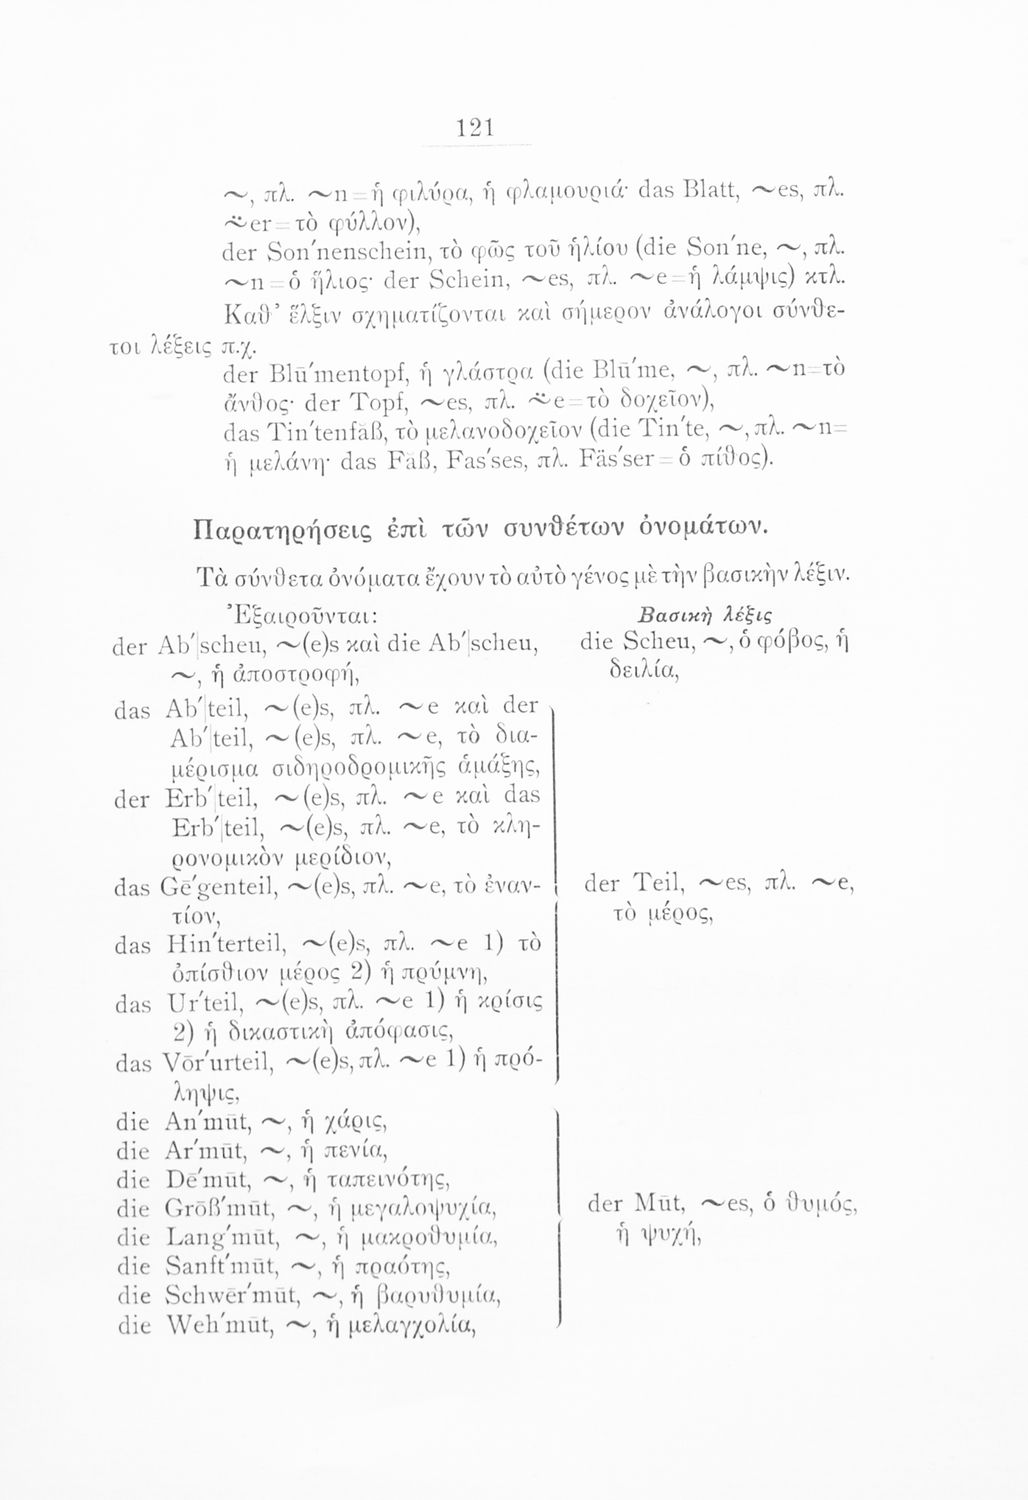 121
~, πλ. ~n = ἡ φιλύρα, ἡ φλαμουριά· das Blatt, ~es, πλ.
~̈er = τὸ φύλλον),
der Son'nenschein, τὸ φῶς τοῦ ἡλίου (die Son'ne, ~, πλ.
~n = ὁ ἥλιος· der Schein, ~es, πλ. ~e = ἡ λάμψις) κτλ.
Καθ' ἕλξιν σχηματίζονται καὶ σήμερον ἀνάλογοι σύνθε-
τοι λέξεις π.χ.
der Blū'mentopf, ἡ γλάστρα (die Blū'me, ~, πλ. ~n = τὸ
ἄνθος· der Topf, ~es, πλ. ~̈e = τὸ δοχεῖον),
das Tin'tenfăß, τὸ μελανοδοχεῖον (die Tin'te, ~, πλ. ~n =
ἡ μελάνη· das Făß, Fas'ses, πλ. Fäs'ser = ὁ πίθος).
Παρατηρήσεις ἐπὶ τῶν συνθέτων ὀνομάτων.
Τὰ σύνθετα ὀνόματα ἔχουν τὸ αὐτὸ γένος μὲ τὴν βασικὴν λέξιν.
Ἐξαιροῦνται:
der Ab'|scheu, ~(e)s καὶ die Ab'|scheu,
~, ἡ ἀποστροφή,
das Ab'|teil, ~(e)s, πλ. ~e καὶ der
Ab'|teil, ~(e)s, πλ. ~e, τὸ δια-
μέρισμα σιδηροδρομικῆς ἁμάξης,
der Erb'|teil, ~(e)s, πλ. ~e καὶ das
Erb'|teil, ~(e)s, πλ. ~e, τὸ κλη-
ρονομικὸν μερίδιον,
das Gē'genteil, ~(e)s, πλ. ~e, τὸ ἐναν-
τίον,
das Hin'terteil, ~(e)s, πλ. ~e 1) τὸ
ὀπίσθιον μέρος 2) ἡ πρύμνη,
das Ur'teil, ~(e)s, πλ. ~e 1) ἡ κρίσις
2) ἡ δικαστικὴ ἀπόφασις,
das Vōr'urteil, ~(e)s, πλ. ~e 1) ἡ πρό-
ληψις,
die An'mūt, ~, ἡ χάρις,
die Ar'mūt, ~, ἡ πενία,
die Dē'mūt, ~, ἡ ταπεινότης,
die Grōß'mūt, ~, ἡ μεγαλοψυχία,
die Lang'mūt, ~, ἡ μακροθυμία,
die Sanft'mūt, ~, ἡ πραότης,
die Schwēr'mūt, ~, ἡ βαρυθυμία,
die Weh'mūt, ~, ἡ μελαγχολία,
Βασικὴ λέξις
die Scheu, ~, ὁ φόβος, ἡ
δειλία,
der Teil, ~es, πλ. ~e,
τὸ μέρος,
der Mūt, ~es, ὁ θυμός,
ἡ ψυχή,